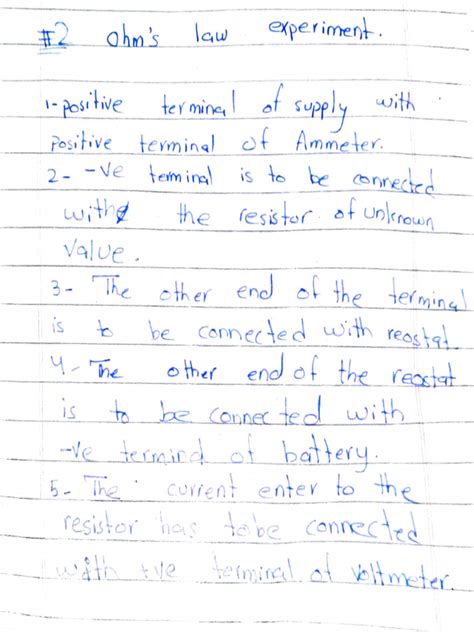 #2 Ohm's law experiment.
1-positive terminal of supply with
Positive terminal of Ammeter.
2- -ve terminal is to be connected
with the resistor of unknown
value.
3- The other end of the terminal
is to be connected with reostat.
4- The other end of the reostat
is to be connected with
-ve termind of battery.
5- The current enter to the
resistor has to be connected
with +ve terminal of voltmeter.